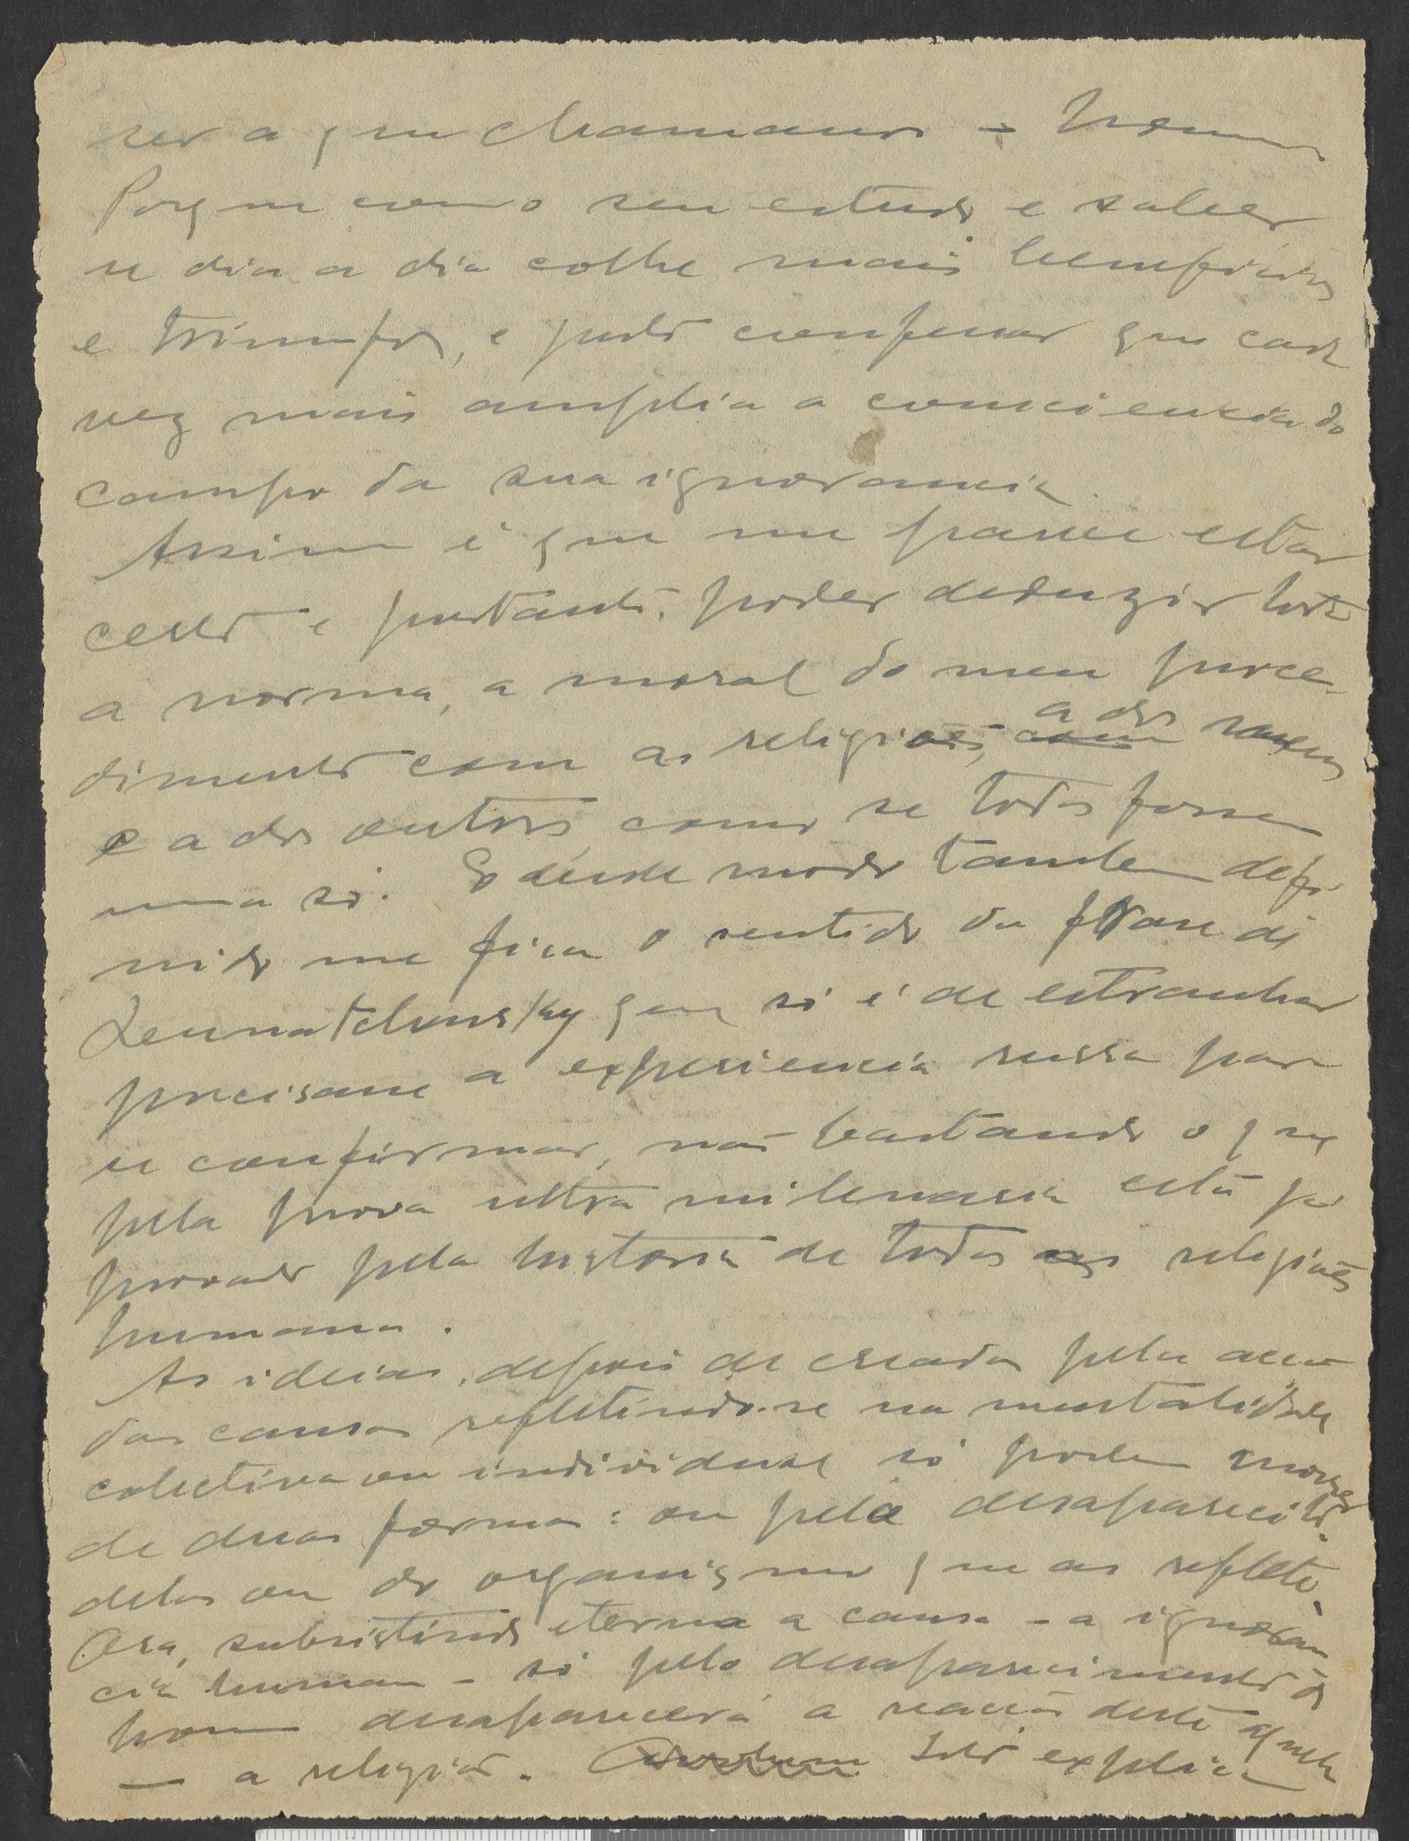 ser a que chamamos – Homem
Porque com o seu estudo e saber
se dia a dia colhe mais beneficios
e triumfos, é justo confessar que cada
vez mais amplia a consciencia do
campo da sua ignorancia.
Assim é que me parece estar
certo e portanto, poder deduzir toda
a norma, a moral do meu proce-
dimento com as religiões, a dos
e a dos outros, como se todas fossem
uma só. E desde modo tambem defi-
nido me fica o sentido da frase de
Lunnatchrsky que só é de estranhar
precisasse a experiencia russa para
se confirmar, não bastando o que
pela prova ultra milenaria está já
provado pela historia de todas as religiões
humanas.
As ideias, depois de creadas pela acção
das causas refletindo-se na mentalidade
colectiva ou individual só podem morrer
de duas formas: ou pela desaparecito
delas ou do organismo que as reflete.
Ora, subsistindo eterna a causa – a ignoran
cia humana – só pelo desaparecimento do
homem desaparecerá a reacção deste aquela
— a religião. Isto explica